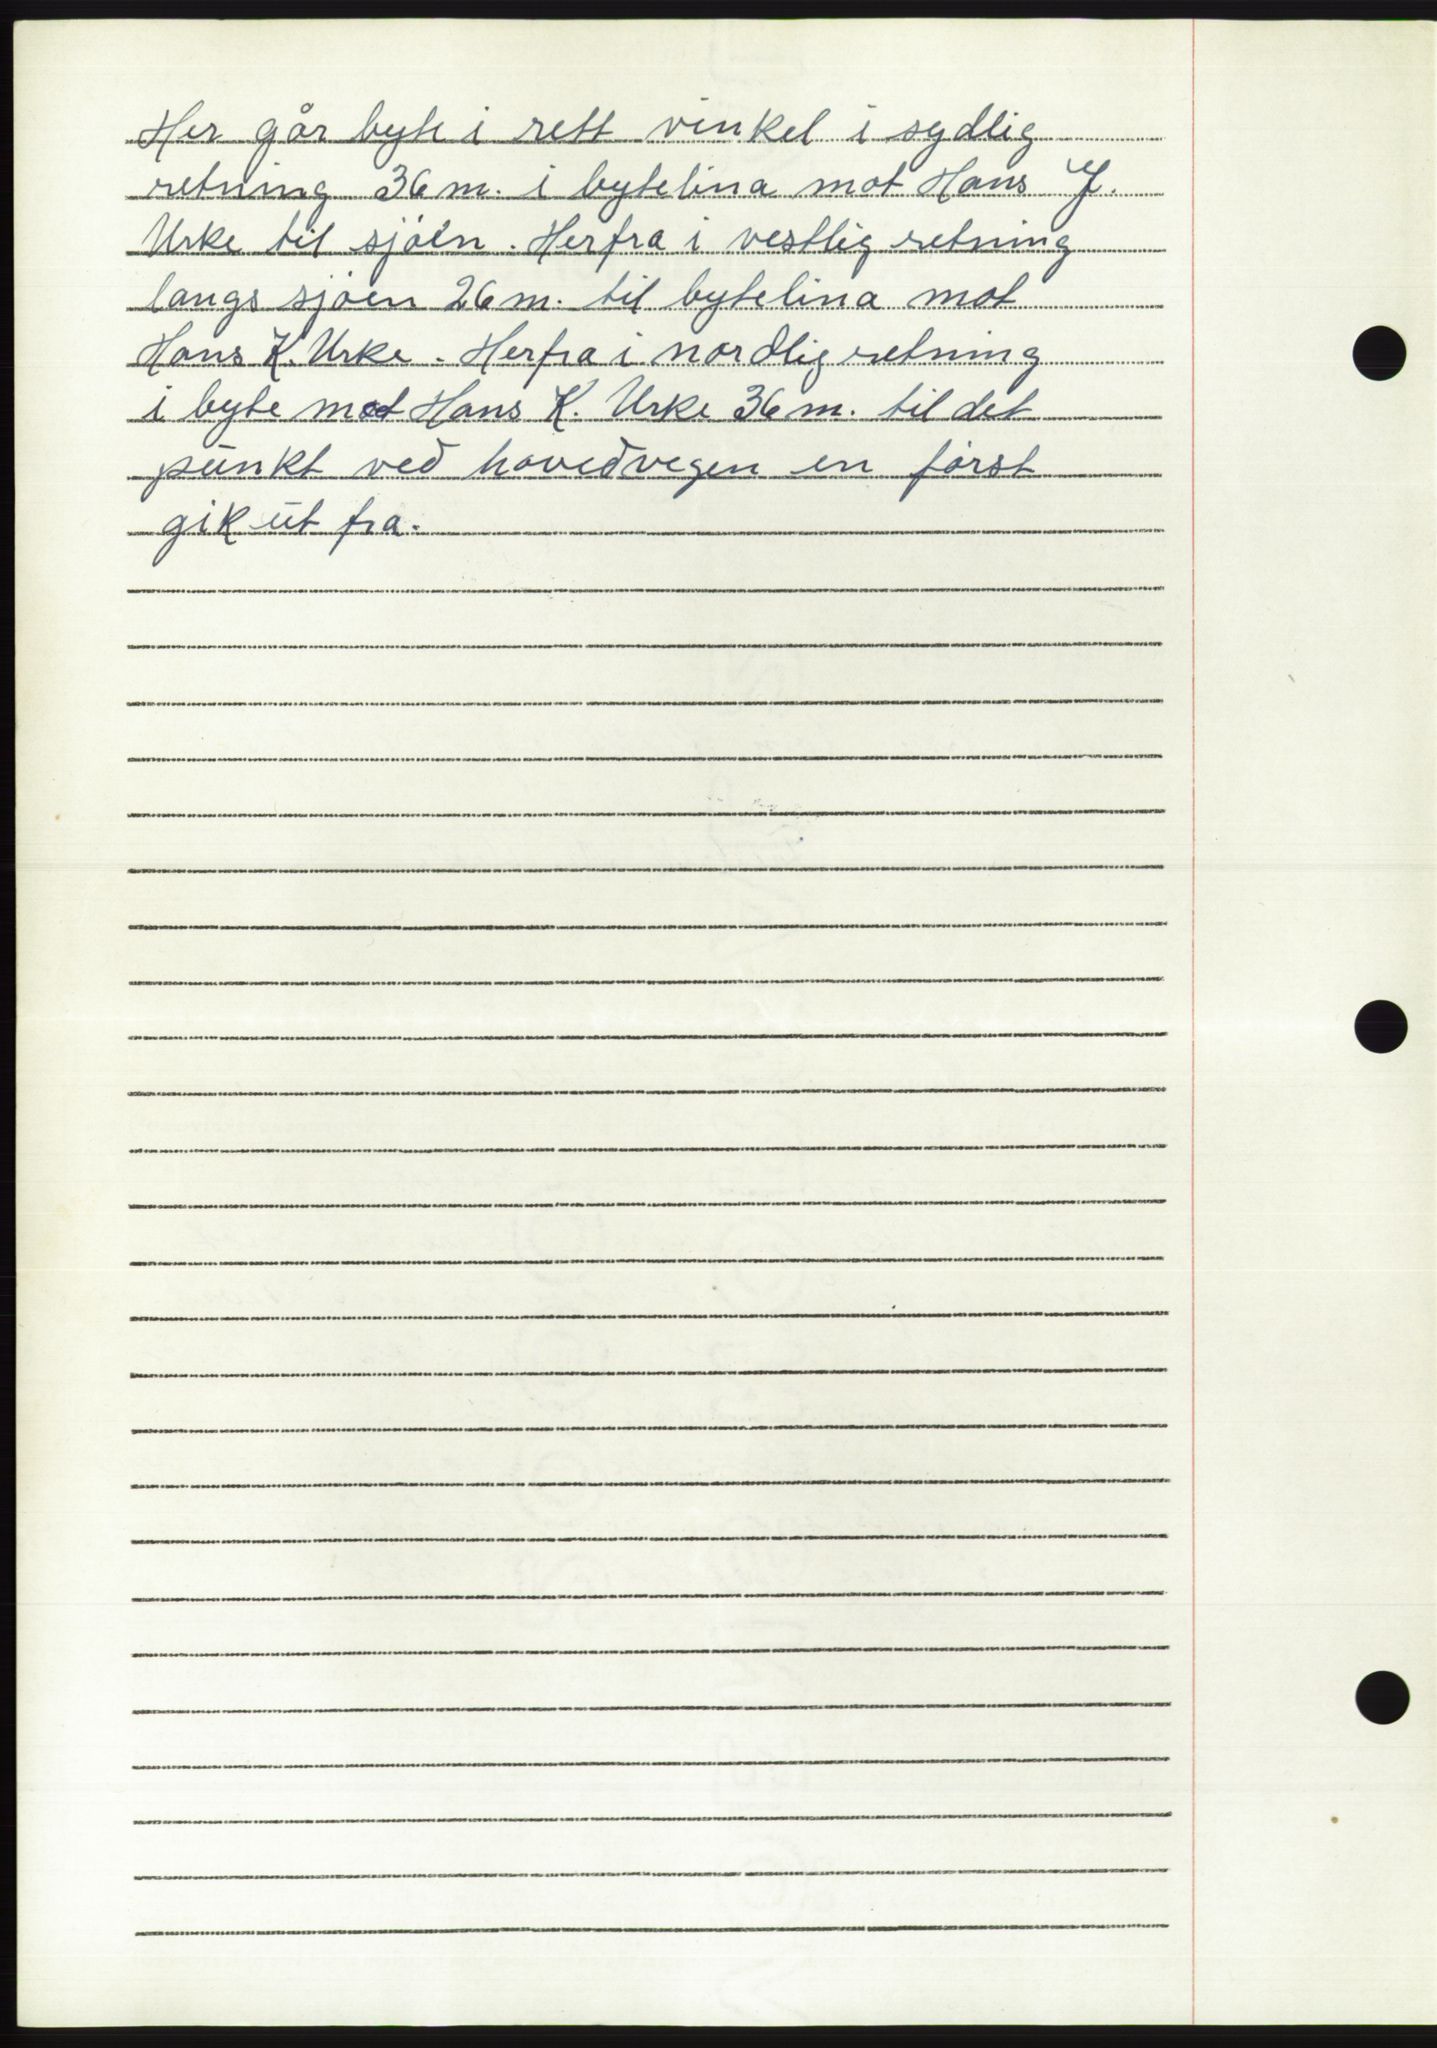 Her går byte i rett vinkel i sydlig
retning 36 m. i bytelina mot Hans J.
Urke til sjöen. Herfra i vestlig retning
langs sjöen 26 m. til bytelina mot
Hans K. Urke. Herfra i nordlig retning
i byte mot Hans K. Urke 36 m. til det
punkt ved hovedvegen en först
gik ut fra.